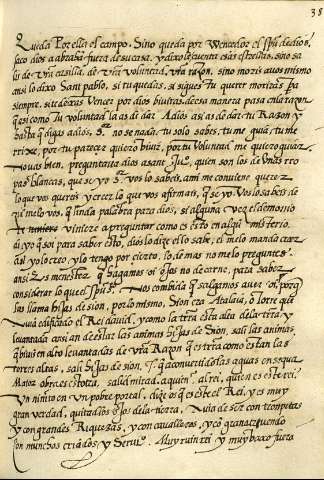 38
Queda Por ella el campo. Sino queda por Vencedor el spũ de dios
saco dios a abraha fuera de su casa. y dixole cuenta esas estrellas, sino sa
lis de vra casilla, de vra voluntad, vra razon, sino moris a vos mismo
ansi lo dixo Sant pablo, si tu quedas, a si que es tu querer morirás pa
siempre. si te dexas Vencer por dios biviras: de esa manera pasa en la razon
q̃ asi como Tu voluntad la as di dar A dios asi as de dar tu Razon y
hasta q̃ digas a dios, Sr no se nada tu solo sabes, tu me guia, tu me
rixe, por tu parecer quiero bivir, por tu Voluntad me quiero guiar
no vais bien, preguntaria dios a sant Juo, quien son los de vnas ro
pas blancas, que se yo Sr vos lo sabeis, ami me conviene querer
lo que vos quereis y creer lo que vos afirmais, q̃ se yo. Vos lo sabeis de
zi melo vos, q̃ linda palabra para dios, si alguna vez el demonio
te viniere a preguntar como es esto en algũ misterio.
di yo q̃ soi para saber esto, dios lo dize el lo sabe, el me lo manda creer
asi yo lo creo, y lo tengo por cierto, lo de mas no me lo preguntes.
ansi es menester q̃ hagamos los ojos no de carne, para saber
considerar lo que el spũ Sto nos combida q̃ salgamos a ver os, porq̃
los llama hijas de sion, por lo mismo, Sion era Atalaia, o torre que
avia edificado el Rei david, y como la tra esta alta de la tra y
levantada assi an de estar las animas hijas de Sion, sali las animas
q̃ bivis en alto levantadas de vra Razon q̃ es tra como estan las
torres altas, sali hijas de sion,
Maior obra es estotra, salid mirad, a quien, al rei, quien es este rei?
Vn niñito en vn pobre portal, dize os q̃ es este el Rei, y es muy
gran verdad, quitad los ojos de la tierra, Avia de ser con trompetas
y con grandes Riquezas, y con cavalleros, y co grandez
son muchos criados, y Servios. Muy ruin rei y muy baxo fuera